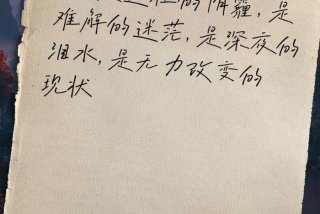 的阴霾,是
难解的迷茫,是深夜的
泪水,是无力改变的
现状